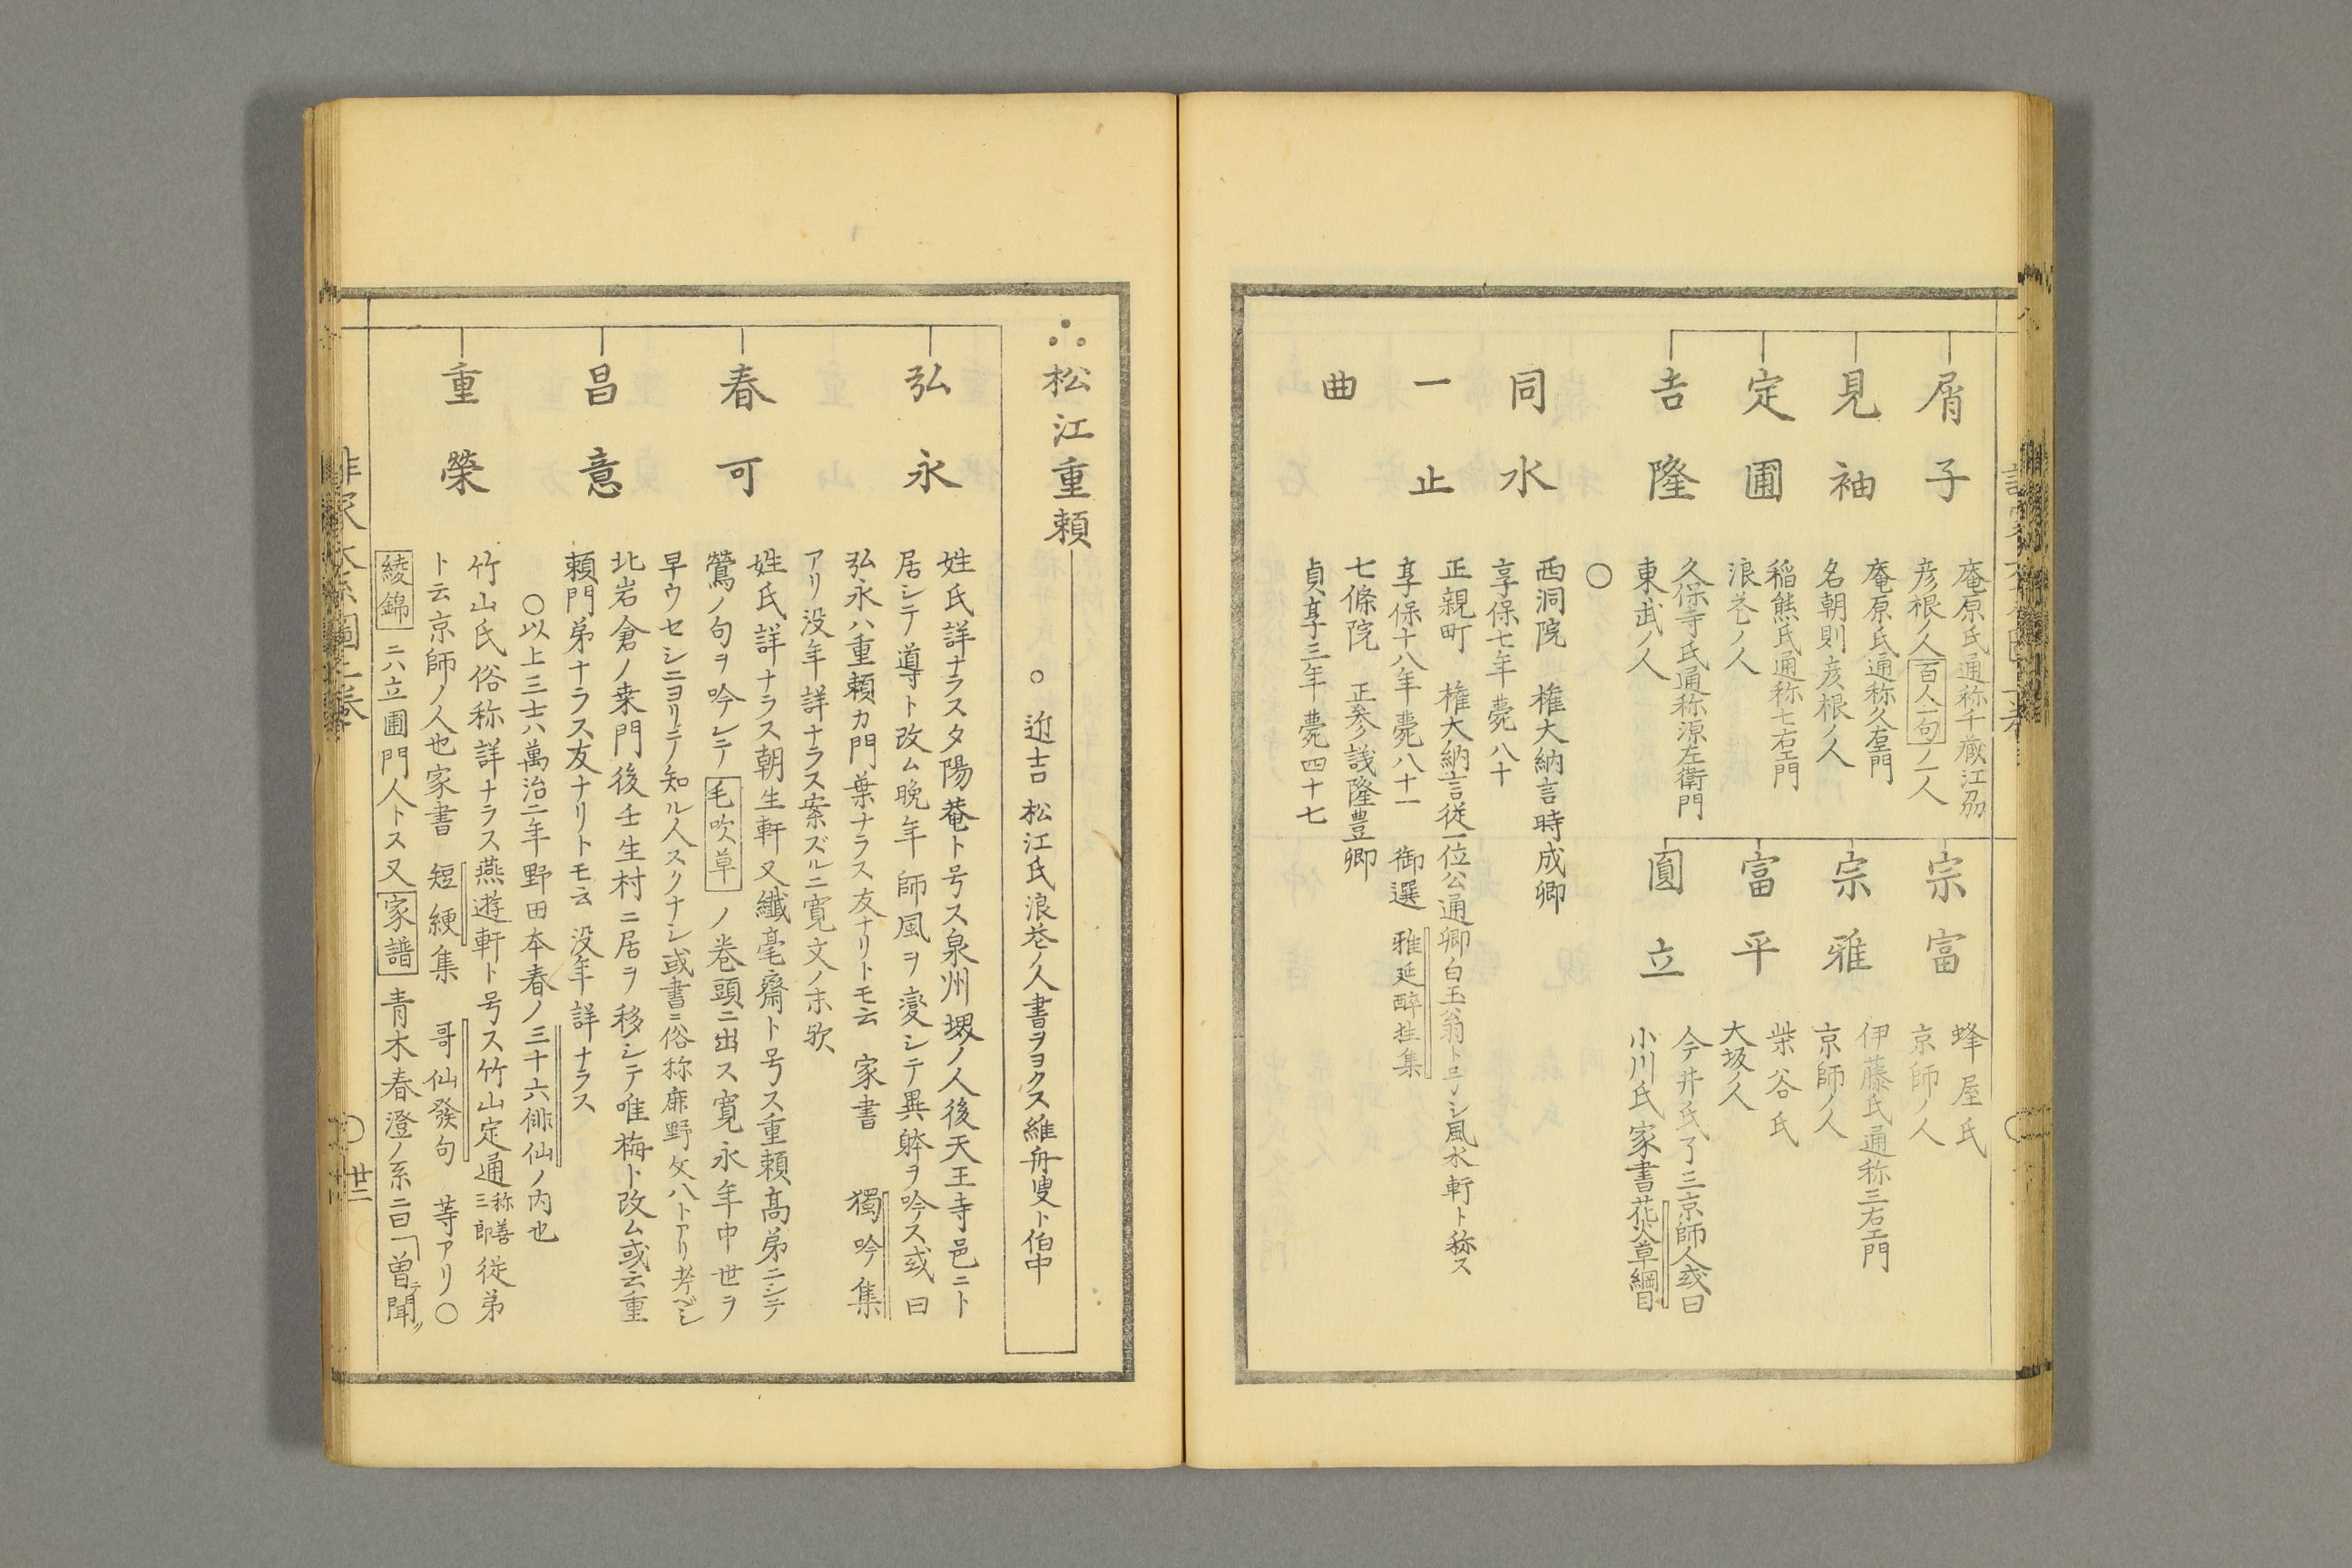 屑子
庵原氏通称千蔵江刕
彦根ノ人百人一句ノ一人
見袖
庵原氏通称久右エ門
名朝則彦根ノ人
定圃
稲熊氏通称七右エ門
浪花ノ人
吉隆
久保寺氏通称源左衛門
東武ノ人
宗富
蜂屋氏
京師ノ人
宗雅
伊藤氏通称三右エ門
京師ノ人
富平
柴谷氏
大坂ノ人
圓立
今井氏了三京師人或曰
小川氏家書花火草綱目
〇
同水
西洞院 権大納言時成卿
享保七年薨八十
一止
正親町 権大納言従一位公通卿白玉翁ト号シ風水軒ト称ス
享保十八年薨八十一 御選 雅延酔狂集
曲
七條院 正参議隆豊卿
貞享三年薨四十七
∴松江重頼
〇近吉松江氏浪花ノ人書ヲヨクス維舟叟ト伯中
弘永
姓氏詳ナラス夕陽菴ト号ス泉州堺ノ人後天王寺邑ニト
居シテ導ト改ム晩年師風ヲ変シテ異躰ヲ吟ス或曰
弘永ハ重頼カ門葉ナラス友ナリトモ云 家書 獨吟集
アリ没年詳ナラス案ズルニ寛文ノ末歟
春可
姓氏詳ナラス朝生軒又纖毫齋ト号ス重頼高弟ニシテ
鶯ノ句ヲ吟シテ毛吹草ノ巻頭ニ出ス寛永年中世ヲ
早ウセシニヨリテ知ル人スクナシ或書ニ俗称鹿野攵八トアリ考ベシ
昌意
北岩倉ノ桒門後壬生村ニ居ヲ移シテ唯梅ト改ム或云重
頼門弟ナラス友ナリトモ云 没年詳ナラス
〇以上三士ハ萬治二年野田本春ノ三十六俳仙ノ内也
重榮
竹山氏俗称詳ナラス燕遊軒ト号ス竹山定通称善三郎従弟
ト云京師ノ人也家書 短綆集 哥仙發句 等アリ〇
綾錦ニハ立圃門人トス又家譜青木春澄ノ系ニ曰「曽テ聞
廿二